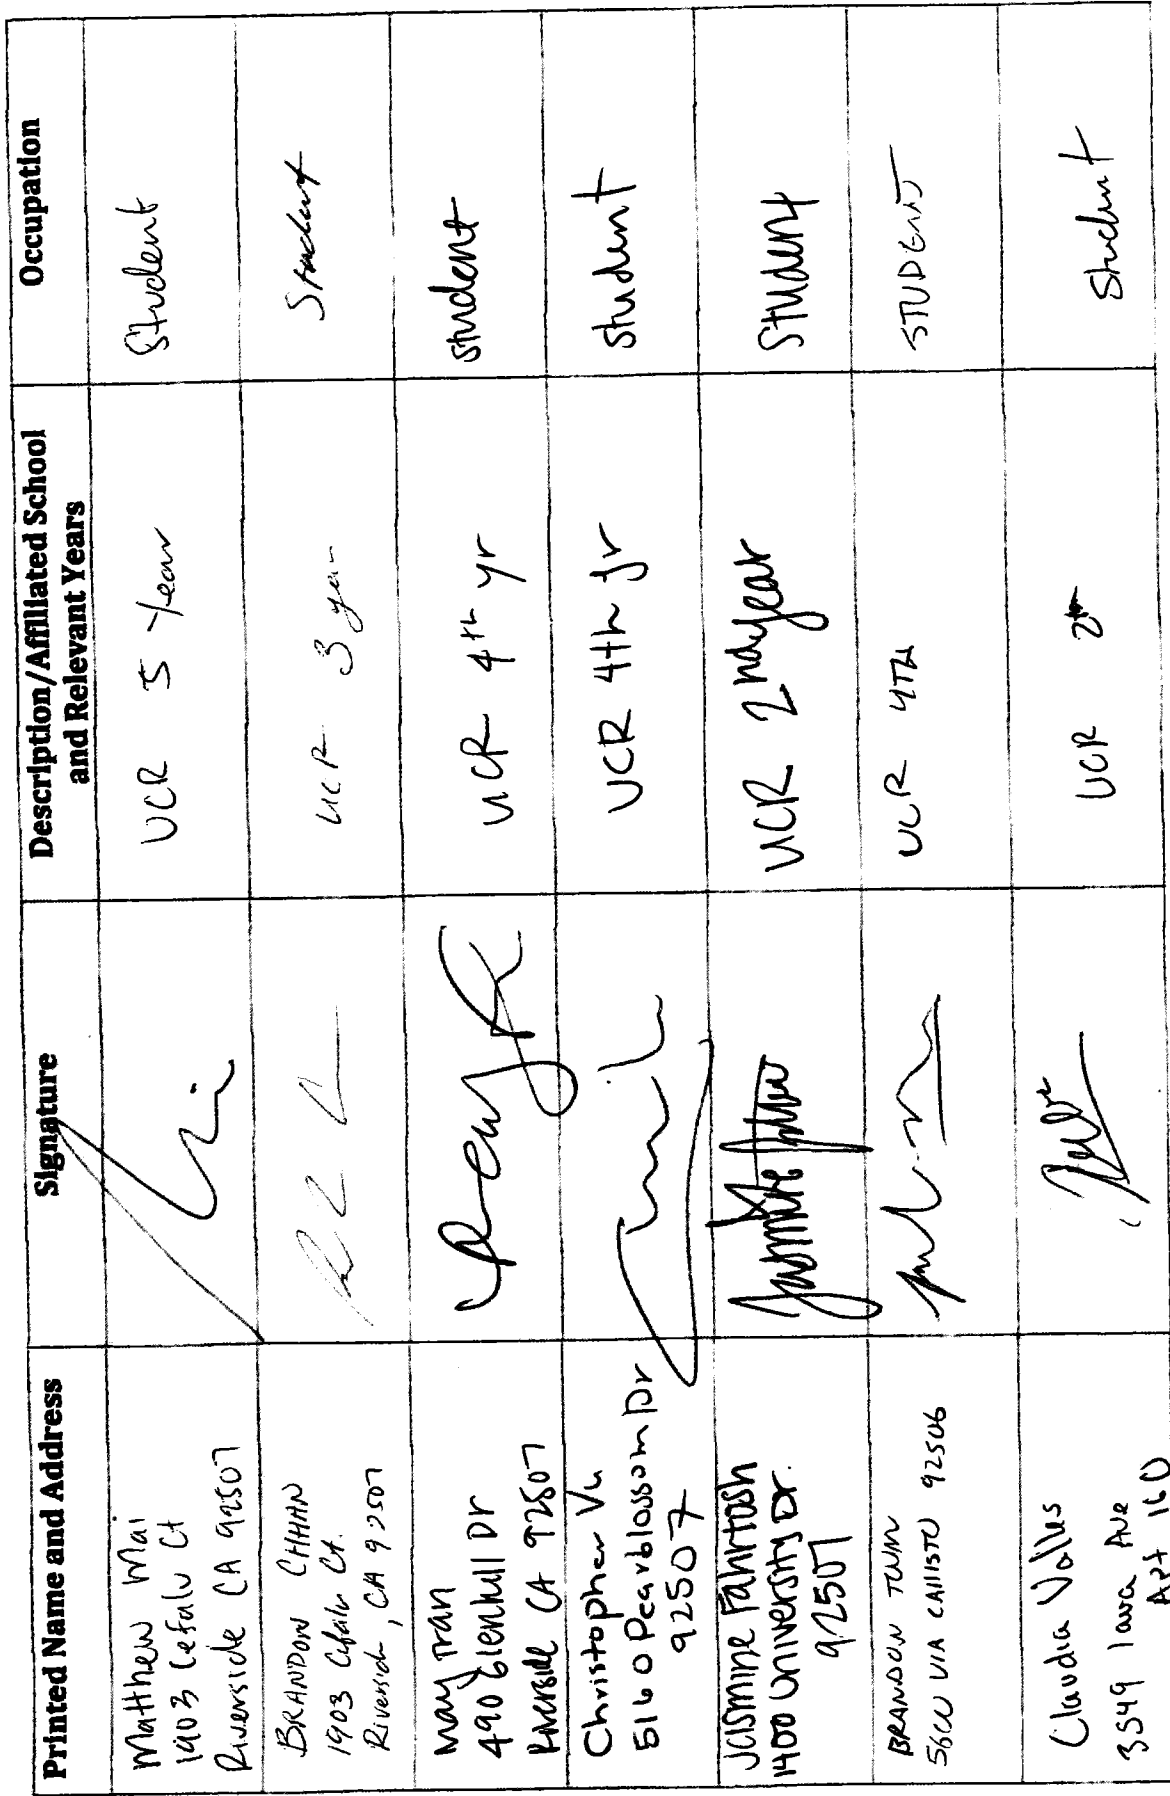 Printed Name and Address
Signature
Description/Affiliated School
and Relevant Years
Occupation
Matthew Mai
1903 Cefalu Ct
Riverside CA 92507
UCR 5 year
Student
BRANDON CHHAN
1903 Cefalu Ct.
Riverside, CA 92507
UCR 3 year
Student
May Tran
490 Glenhill Dr
Riverside CA 92507
UCR 4th yr
student
Christopher Vu
5160 Pearblossom Dr
92507
UCR 4th yr
student
Jasmine Fahrtash
1400 University Dr.
92507
UCR 2nd year
Student
BRANDON
VIA CALLISTO 92506
UCR 4TH
STUDENT
Claudia Valles
3549 Ave
Apt 160
UCR
Student